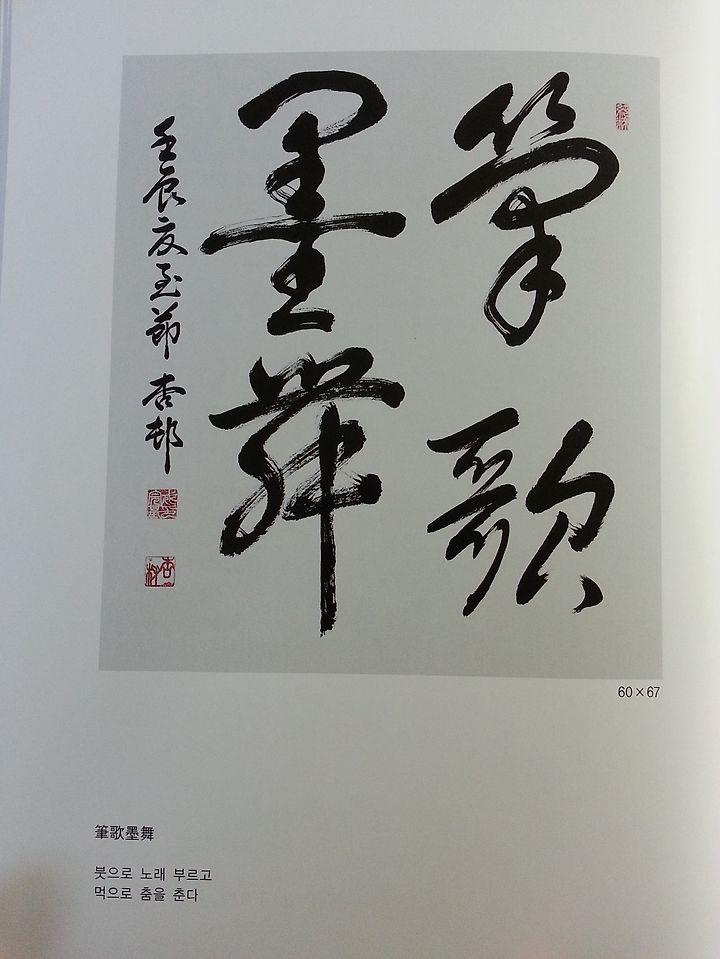 筆歌
墨舞
壬辰夏至節 杏邨
60×67
筆歌墨舞
붓으로 노래 부르고
먹으로 춤을 춘다